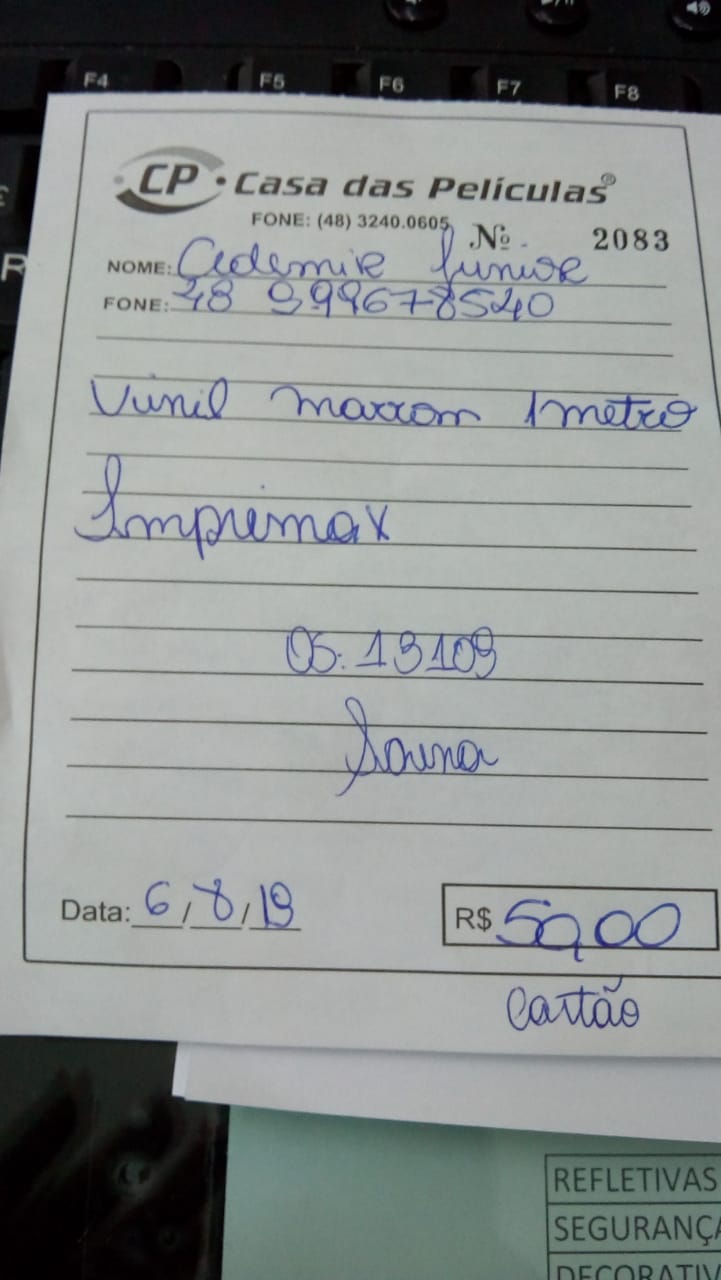 F4 F5 F6 F7 F8
CP • Casa das Películas®
FONE: (48) 3240.0605 Nº - 2083
NOME: Ademir Junior
FONE: 48 999678540
Vinil marrom 1 metro
Imprimax
OS: 19109
Data: 6/8/19
R$ 50,00
Cartão
REFLETIVAS
SEGURANÇA
DECORATIV